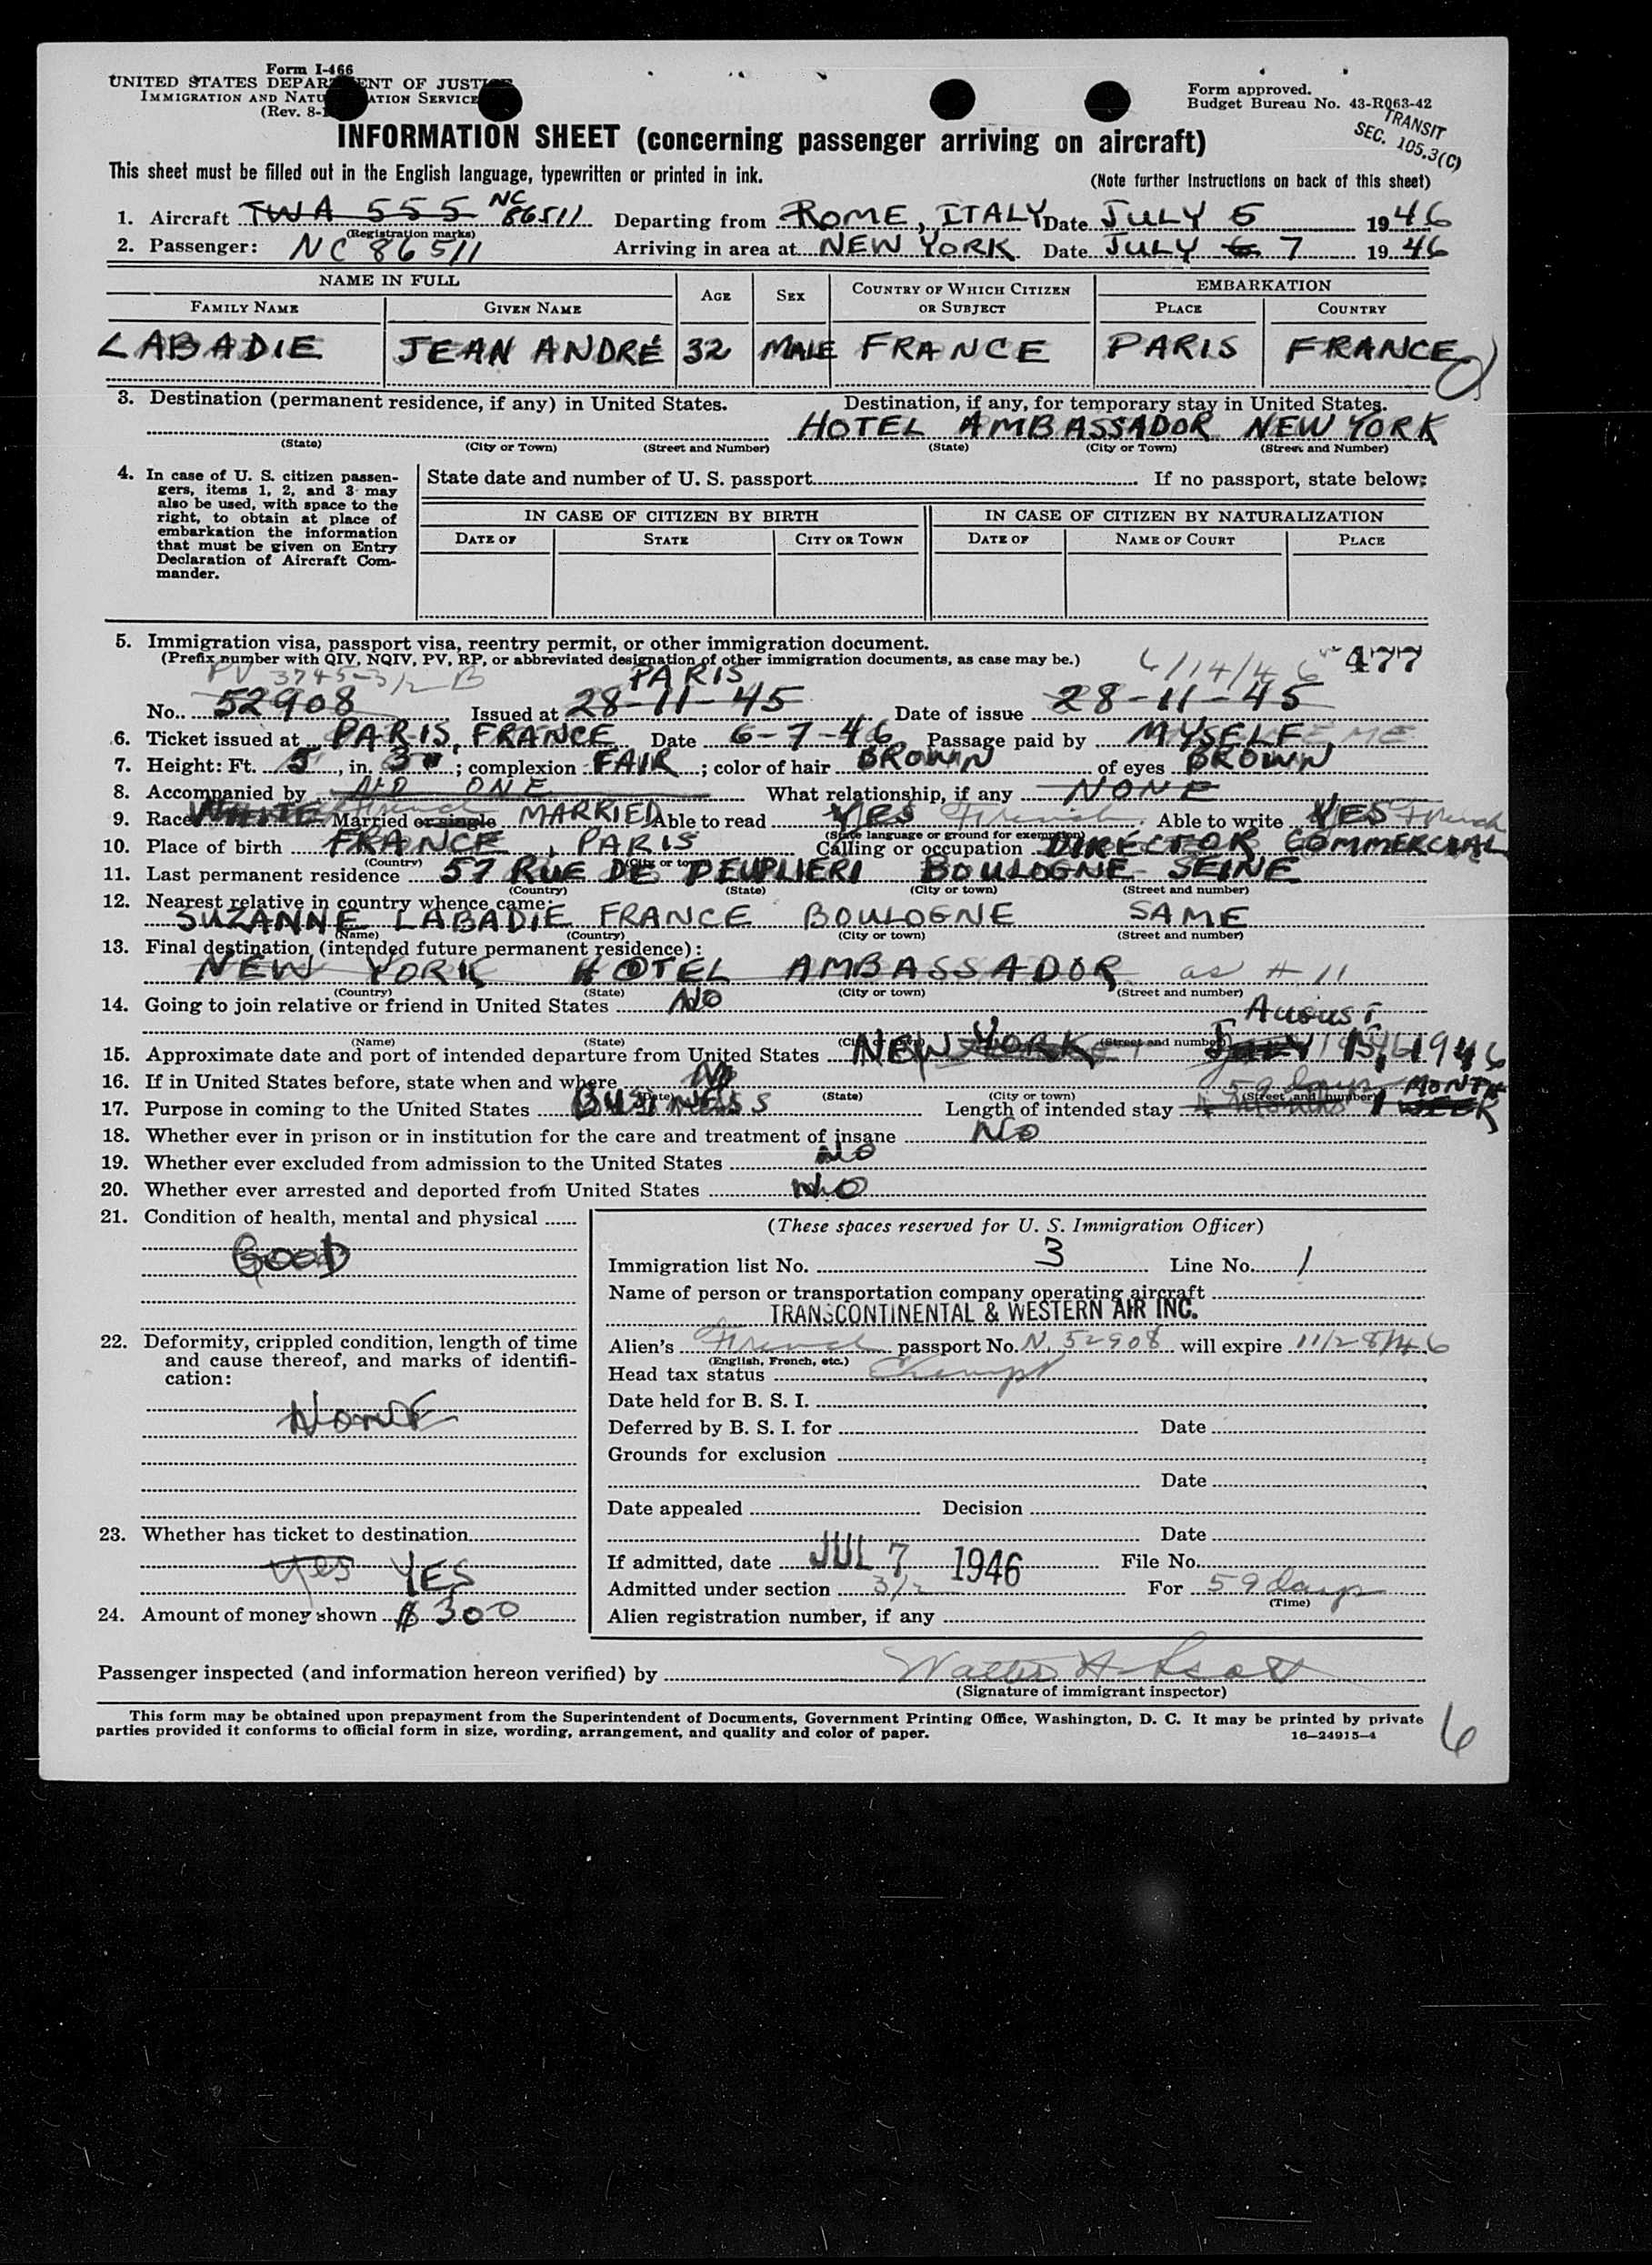 Form I-466
UNITED STATES DEPARTMENT OF JUSTICE
IMMIGRATION AND NATURALIZATION SERVICE
(Rev. 8-
Form approved.
Budget Bureau No. 43-R063-42
TRANSIT
SEC. 105.3(C)
INFORMATION SHEET (concerning passenger arriving on aircraft)
This sheet must be filled out in the English language, typewritten or printed in ink.
(Note further instructions on back of this sheet)
1. Aircraft TWA 555 NC 86511 Departing from ROME, ITALY Date JULY 5 1946
(Registration marks)
2. Passenger: NC 86511 Arriving in area at NEW YORK Date JULY 6 7 1946
NAME IN FULL AGE SEX COUNTRY OF WHICH CITIZEN OR SUBJECT EMBARKATION
FAMILY NAME GIVEN NAME PLACE COUNTRY
LABADIE JEAN ANDRÉ 32 MALE FRANCE PARIS FRANCE
3. Destination (permanent residence, if any) in United States. Destination, if any, for temporary stay in United States.
HOTEL AMBASSADOR NEW YORK
(State) (City or Town) (Street and Number) (State) (City or Town) (Street and Number)
4. In case of U. S. citizen passen-
gers, items 1, 2, and 3 may
also be used, with space to the
right, to obtain at place of
embarkation the information
that must be given on Entry
Declaration of Aircraft Com-
mander.
State date and number of U. S. passport If no passport, state below:
IN CASE OF CITIZEN BY BIRTH IN CASE OF CITIZEN BY NATURALIZATION
DATE OF STATE CITY OR TOWN DATE OF NAME OF COURT PLACE
5. Immigration visa, passport visa, reentry permit, or other immigration document.
(Prefix number with QIV, NQIV, PV, RP, or abbreviated designation of other immigration documents, as case may be.)
PV 3745-3/2 B PARIS 6/14/46 477
No. 52908 Issued at 28-11-45 Date of issue 28-11-45
6. Ticket issued at PARIS, FRANCE Date 6-7-46 Passage paid by MYSELF, ME
7. Height: Ft. 5, in. 3"; complexion FAIR; color of hair BROWN of eyes BROWN
8. Accompanied by NO ONE What relationship, if any NONE
9. Race WHITE French Married or single MARRIED Able to read YES French Able to write YES French
(State language or ground for exemption)
10. Place of birth FRANCE, PARIS Calling or occupation DIRECTOR COMMERCIAL
(Country) (City or town)
11. Last permanent residence 57 RUE DE PEUPLIERI BOULOGNE SEINE
(Country) (State) (City or town) (Street and number)
12. Nearest relative in country whence came:
SUZANNE LABADIE FRANCE BOULOGNE SAME
(Name) (Country) (City or town) (Street and number)
13. Final destination (intended future permanent residence):
NEW YORK HOTEL AMBASSADOR as # 11
(Country) (State) (City or town) (Street and number)
14. Going to join relative or friend in United States NO
AUGUST
(Name) (State) (Street and number)
15. Approximate date and port of intended departure from United States NEW YORK JULY 15, 1946
16. If in United States before, state when and where NO
(Date) (State) (City or town) (Street and number)
17. Purpose in coming to the United States BUSINESS Length of intended stay 59 days 1 MONTH WEEK
18. Whether ever in prison or in institution for the care and treatment of insane NO
19. Whether ever excluded from admission to the United States NO
20. Whether ever arrested and deported from United States NO
21. Condition of health, mental and physical
GOOD
22. Deformity, crippled condition, length of time
and cause thereof, and marks of identifi-
cation:
NONE
23. Whether has ticket to destination
yes YES
24. Amount of money shown $ 300
(These spaces reserved for U. S. Immigration Officer)
Immigration list No. 3 Line No. 1
Name of person or transportation company operating aircraft
TRANSCONTINENTAL & WESTERN AIR INC.
Alien's French passport No. N. 52908 will expire 11/28/46
(English, French, etc.)
Head tax status Exempt
Date held for B. S. I.
Deferred by B. S. I. for Date
Grounds for exclusion
Date
Date appealed Decision
Date
If admitted, date JUL 7 1946 File No.
Admitted under section 3/2 For 59 days
(Time)
Alien registration number, if any
Passenger inspected (and information hereon verified) by Walter H Scott
(Signature of immigrant inspector)
This form may be obtained upon prepayment from the Superintendent of Documents, Government Printing Office, Washington, D. C. It may be printed by private
parties provided it conforms to official form in size, wording, arrangement, and quality and color of paper.
16—24915-4
6